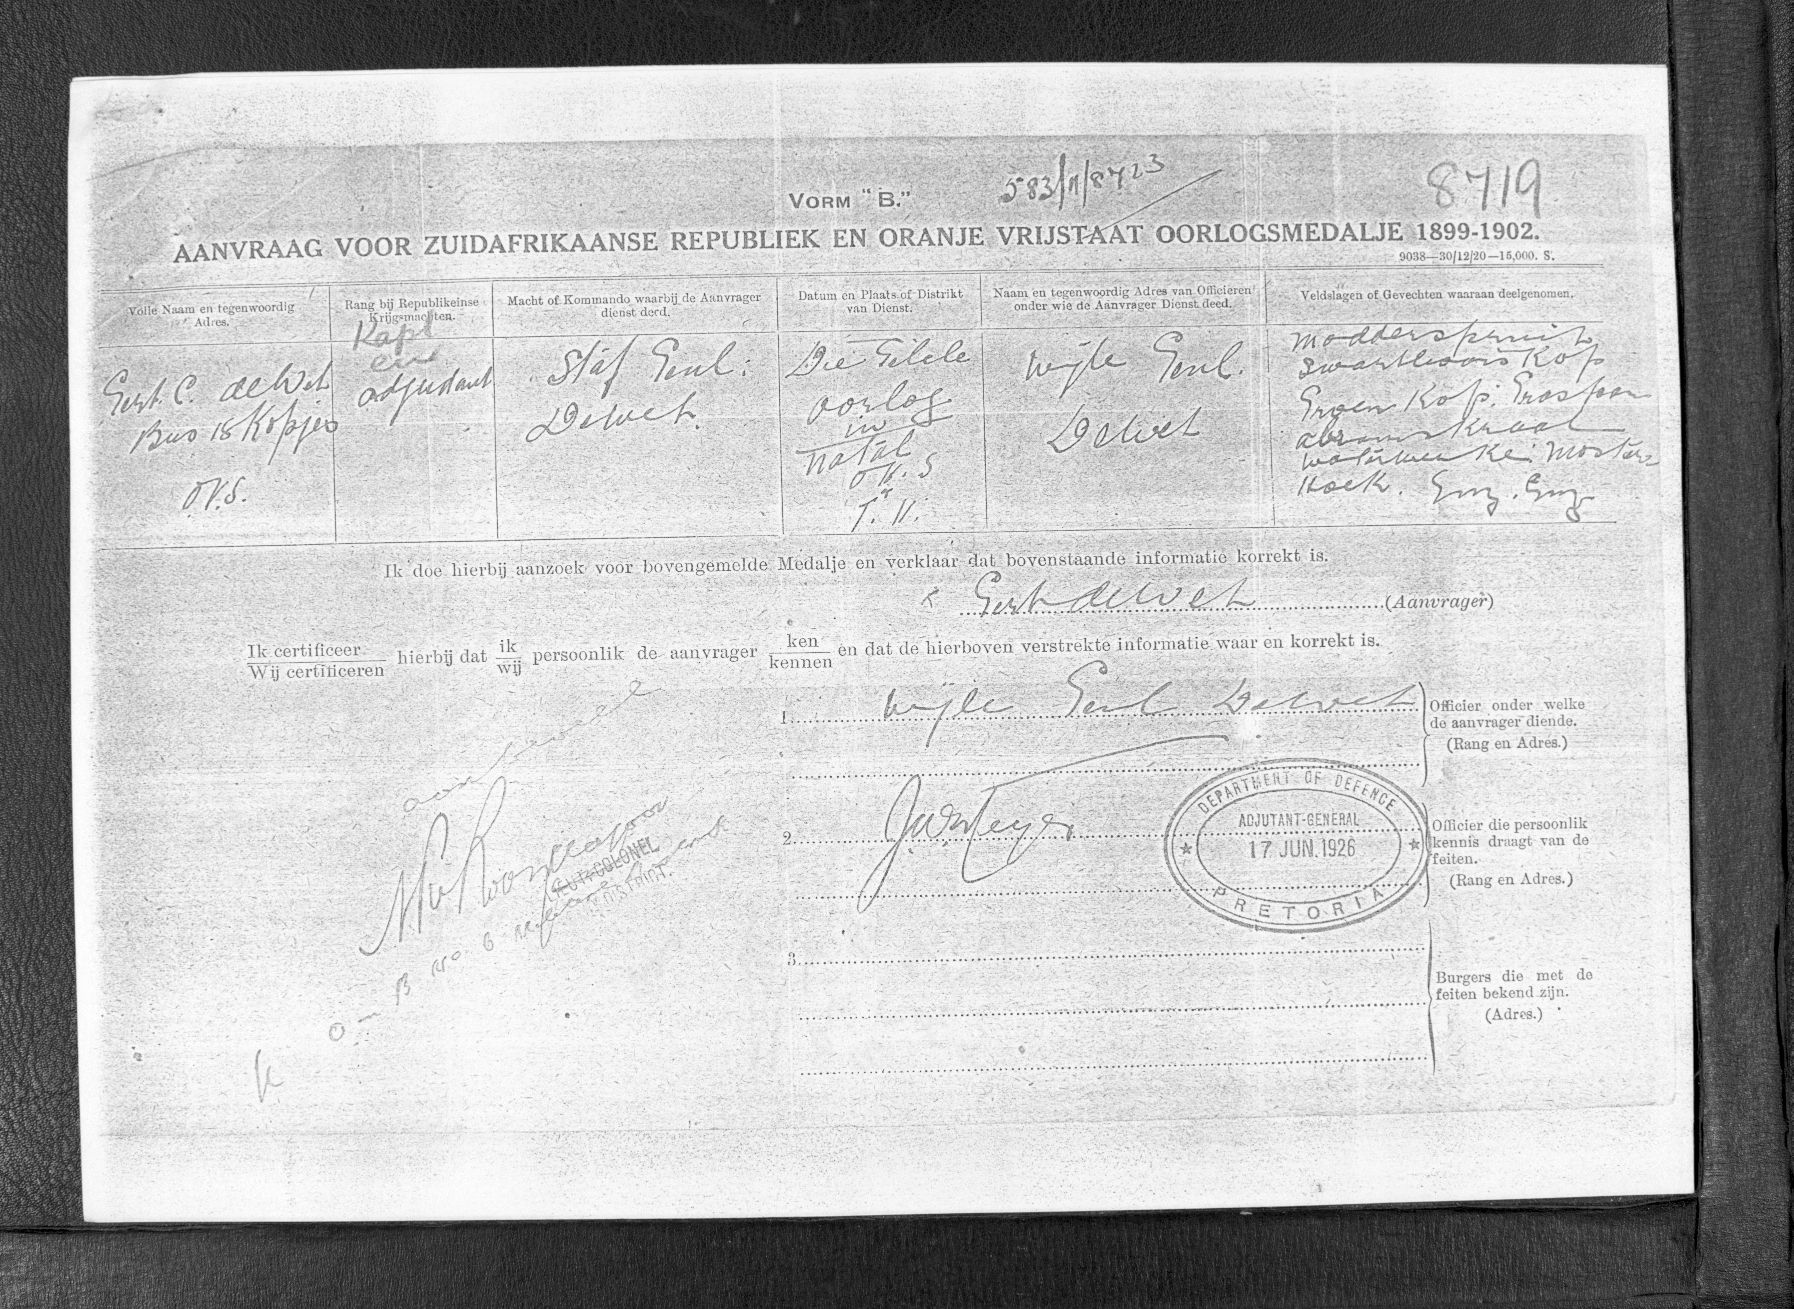 VORM "B."
583/11/8723
8719
AANVRAAG VOOR ZUIDAFRIKAANSE REPUBLIEK EN ORANJE VRIJSTAAT OORLOGSMEDALJE 1899-1902.
9038—30/12/20—15,000. S.
Volle Naam en tegenwoordig
Adres.
Rang bij Republikeinse
Krijgsmachten.
Macht of Kommando waarbij de Aanvrager
dienst deed.
Datum en Plaats of Distrikt
van Dienst.
Naam en tegenwoordig Adres van Officieren
onder wie de Aanvrager Dienst deed.
Veldslagen of Gevechten waaraan deelgenomen.
Gert. C. de Wet
Bus 18 Kopjes
O.V.S.
Kapt
en
adjudant
Staf Genl:
De Wet.
Die Gehele
oorlog
in
Natal
O.V.S
T.V.
Wijle Genl.
De Wet
Modderspruit
Swartboois Kop
Groen Kop. Graspan
abrams Kraal
Mosters
Hoek. Enz. Enz
Ik doe hierbij aanzoek voor bovengemelde Medalje en verklaar dat bovenstaande informatie korrekt is.
x Gert de Wet (Aanvrager)
Ik certificeer
Wij certificeren
hierbij dat
ik
wij
persoonlik de aanvrager
ken
kennen
en dat de hierboven verstrekte informatie waar en korrekt is.
1. Wijle Genl De Wet
Officier onder welke
de aanvrager diende.
(Rang en Adres.)
2. Meyer
Officier die persoonlik
kennis draagt van de
feiten.
(Rang en Adres.)
DEPARTMENT OF DEFENCE
ADJUTANT-GENERAL
17 JUN. 1926
PRETORIA
3.
Burgers die met de
feiten bekend zijn.
(Adres.)
aanbeveel
LEUT.-COLONEL
O - B No. 6